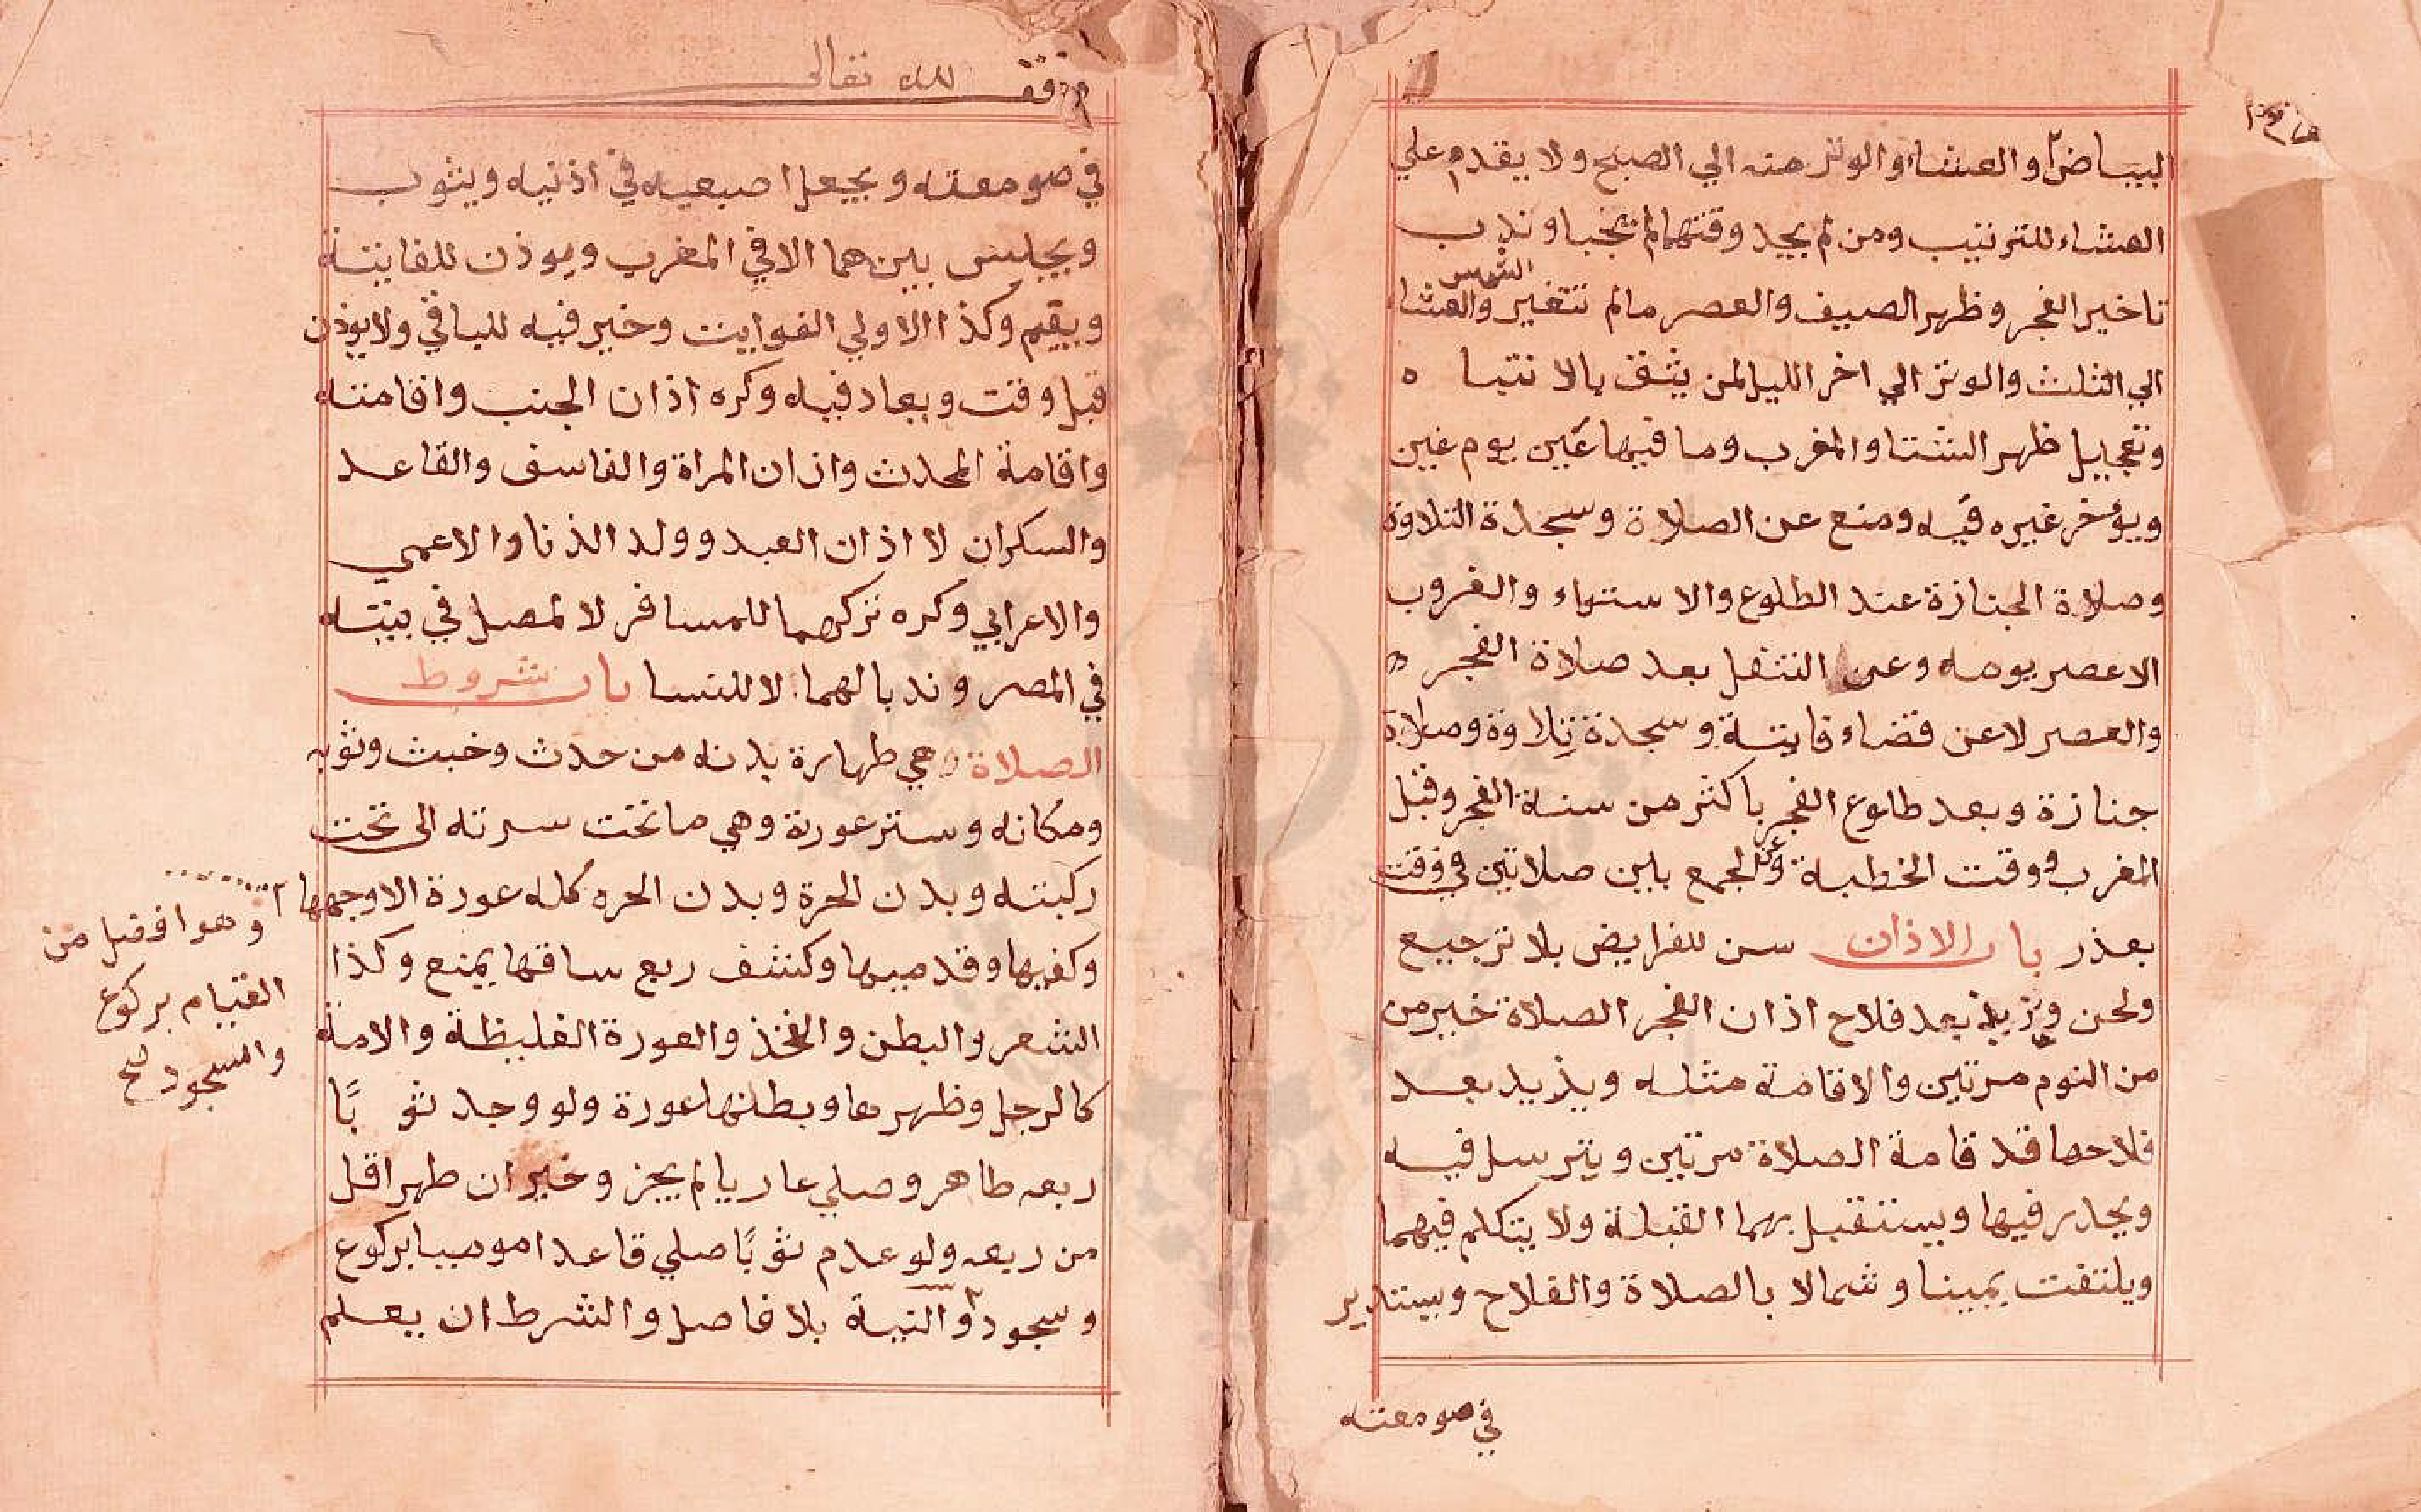 البياض والعشاء والوتر منه الي الصبح ولا يقدم علي
العشاء للترتيب ومن لم يجد وقتهما لم يجبا وندب
تاخير الفجر وظهر الصيف والعصر مالم تتغير الشمس والعشا
الي الثلث والوتر الي اخر الليل لمن يثق بالانتباه
وتعجيل ظهر الشتا والمغرب وما فيها عين يوم غين
ويؤخر غيره فيه ومنع عن الصلاة وسجدة التلاوة
وصلاة الجنازة عند الطلوع والاستواء والغروب
الاعصر يومه وعن التنفل بعد صلاة الفجر
والعصر لاعن قضاء فايتة وسجدة تلاوة وصلاة
جنازة وبعد طلوع الفجر باكثر من سنة الفجر وقبل
المغرب ووقت الخطبة وعن الجمع بين صلاتين في وقت
بعذر باب الاذان سن للفرايض بلا ترجيع
ولحن ويزيد بعد فلاح اذان الفجر الصلاة خير من
من النوم مرتين والاقامة مثله ويذيد بعد
فلاحها قد قامة الصلاة مرتين ويترسل فيه
ويحدر فيها ويستقبل بهما القبلة ولا يتكلم فيهما
ويلتفت يمينا وشمالا بالصلاة والفلاح ويستدير
في صومعته
وقف لله تعالى
في صومعته ويجعل اصبعيه في اذنيه ويثوب
ويجلس بينهما الا في المغرب ويوذن للفايتة
ويقيم وكذا الاولي الفوايت وخير فيه للباقي ولا يوذن
قبل وقت ويعاد فيه وكره اذان الجنب واقامته
واقامة المحدث واذان المراة والفاسق والقاعد
والسكران لا اذان العبد وولد الذنا والاعمي
والاعرابي وكره تركهما للمسافر لا لمصل في بيته
في المصر وندبا لهما لا للنسا باب شروط
الصلاة وهي طهارة بدنه من حدث وخبث وثوبه
ومكانه وستر عورة وهي ما تحت سرته الى تحت
ركبته وبدن الحرة وبدن الحره كله عورة الا وجهها
وكفيها وقدميها وكشف ربع ساقها يمنع وكذا
الشعر والبطن والفخذ والعورة الغليظة والامة
كالرجل وظهرها وبطنها عورة ولو وجد ثوبًا
ربعه طاهر وصلي عاريا لم يجز وخير ان طهر اقل
من ربعه ولو عدم ثوبًا صلي قاعدا موميا بركوع
وسجود والنية بلا فاصل والشرط ان يعلم
وهو افضل من
القيام بركوع
والسجود صح